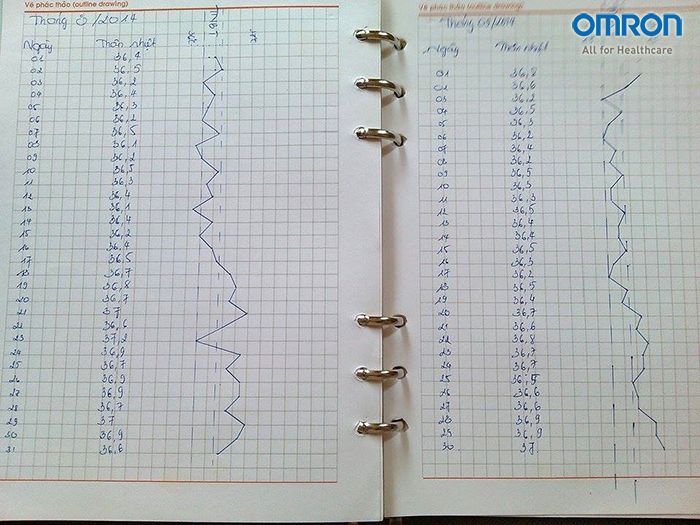 Vẽ phác thảo (outline drawing)
Tháng 8/2014
Ngày Thân nhiệt
01 36,4
02 36,5
03 36,2
04 36,4
05 36,3
06 36,2
07 36,5
08 36,1
09 36,2
10 36,5
11 36,3
12 36,4
13 36,1
14 36,4
15 36,2
16 36,4
17 36,5
18 36,7
19 36,8
20 36,7
21 37
22 36,6
23 37,2
24 36,9
25 36,7
26 36,9
27 36,9
28 36,7
29 37
30 36,9
31 36,6
Vẽ phác thảo (outline drawing)
OMRON
All for Healthcare
Tháng 09/2014
Ngày Thân nhiệt
01 36,8
02 36,6
03 36,2
04 36,5
05 36,3
06 36,2
07 36,4
08 36,2
09 36,5
10 36,3
11 36,3
12 36,5
13 36,4
14 36,4
15 36,5
16 36,3
17 36,2
18 36,5
19 36,4
20 36,7
21 36,6
22 36,8
23 36,7
24 36,7
25 36,5
26 36,6
27 36,6
28 36,9
29 36,9
30 37